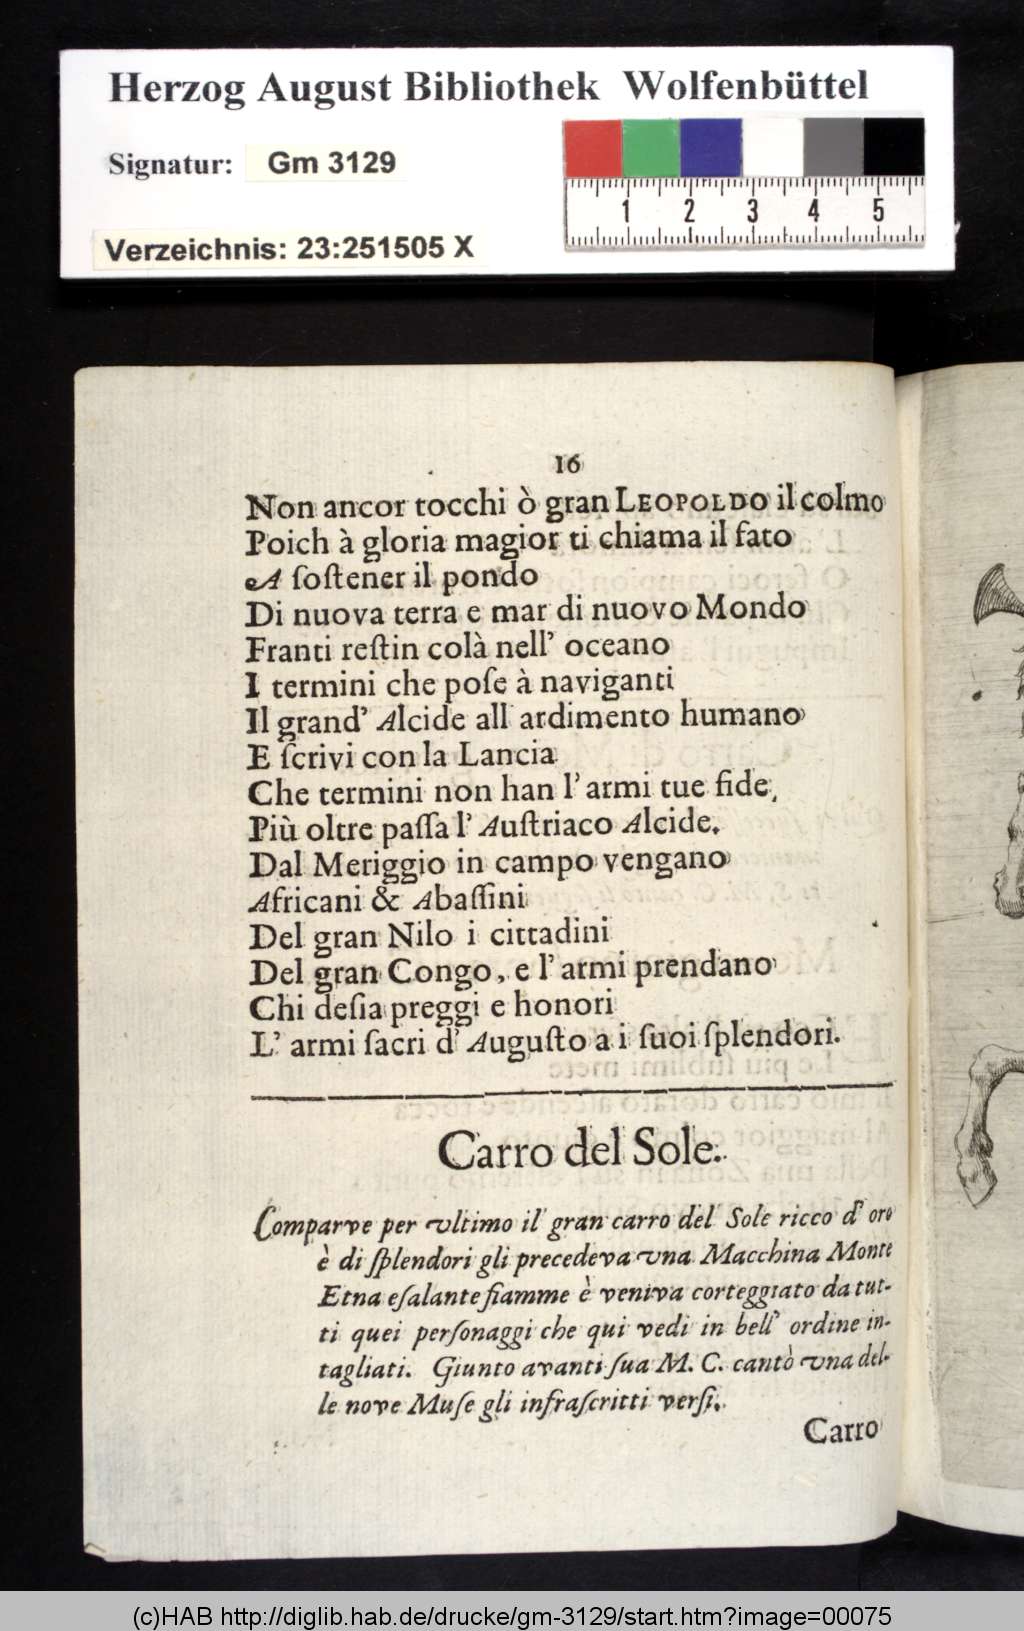 Herzog August Bibliothek Wolfenbüttel
Signatur: Gm 3129
Verzeichnis: 23:251505 X
1 2 3 4 5
16
Non ancor tocchi ò gran LEOPOLDO il colmo
Poich à gloria magior ti chiama il fato
A ſoſtener il pondo
Di nuova terra e mar di nuovo Mondo
Franti reſtin colà nell' oceano
I termini che poſe à naviganti
Il grand' Alcide all ardimento humano
E ſcrivi con la Lancia
Che termini non han l' armi tue fide,
Più oltre paſſa l' Auſtriaco Alcide.
Dal Meriggio in campo vengano
Africani & Abaſſini
Del gran Nilo i cittadini
Del gran Congo, e l' armi prendano
Chi deſia preggi e honori
L' armi ſacri d' Auguſto a i ſuoi ſplendori.
Carro del Sole.
Comparve per vltimo il gran carro del Sole ricco d' oro
è di ſplendori gli precedeva vna Macchina Monte
Etna eſalante fiamme è veniva corteggiato da tut-
ti quei perſonaggi che qui vedi in bell' ordine in-
tagliati. Giunto avanti ſua M. C. cantò vna del-
le nove Muſe gli infraſcritti verſi.
Carro
(c)HAB http://diglib.hab.de/drucke/gm-3129/start.htm?image=00075